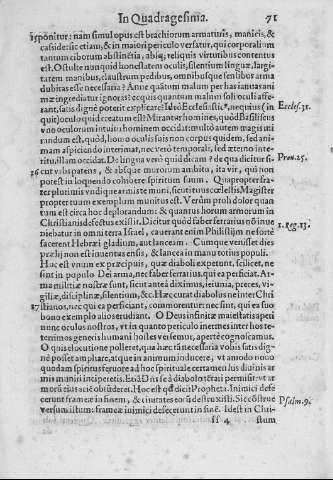 In Quadragesima. 71
isponitur: nam simul opus est brachiorum armaturis, manicis, &
casside: sic etiam, & in maiori periculo versatur, qui corporalium
tantum ciborum abstinētia, absq; reliquis virtutibus contentus
est. Ostulte nunquid honestatem oculis, silentium linguæ, largi-
tatem manibus, claustrum pedibus, omnibusque sensibus arma
dubitas esse necessaria? Anne quātum malum per has ianuas ani
mæ ingrediatur ignoras: ecquis quantum malum soli oculi asse-
rant, satis digne poterit explicare? Ideo Ecclesiastic⁹, nequius (in Eccles. 31.
quit) oculo quid creatum est? Mirantur homines, quòd Basiliscus
vno oculorum intuitu hominem occidat: multò autem magis mi
randum est, quòd, homo oculis suis non corpus quidem, sed ani-
mam aspiciendo interimat, nec verò temporali, sed æterno inte-
ritu, illam occidat. De lingua verò quid dicam? de qua dicitur si- Prou. 25.
cut vrbs patens, & absque murorum ambitu, ita vir, qui non
potest in loquendo cohibere spiritum suum. Quapropter fra-
ter plurimis vndique armis te muni, sicuti tuus cœlestis Magister
propter tuum exemplum munitus est. Verùm proh dolor quan
tum est circa hoc deplorandum: & quantus horum armorum in
Christianis defectus est. Dicitur quòd faber ferrarius nō inue 1. Reg. 13.
niebatur in omni terra Israel, cauerant enim Philistijm ne fortè
facerent Hebræi gladium, aut lanceam. Cumque venisset dies
prælij non est inuentus ensis, & lancea in manu totius populi.
Huc est vnum ex præcipuis, quæ diabolus expetit, scilicet, ne
sint in populo Dei arma, nec faber ferrarius, qui ea perficiat. Ar-
ma militiæ nostræ sunt, sicut antea diximus, ieiunia, preces, vi-
giliæ, disciplinæ, silentium, &c. Hæc curat diabolus ne inter Chri
stianos, nec qui ea perficiat, commorentur: nec sint, qui ea suo
bono exemplo alios erudiant. O Deus infinitæ maiestatis aperi
nunc oculos nostros, vt in quanto periculo inermes inter hos te-
terrimos generis humani hostes versemur, apertè cognoscamus.
O quis elocutione polleret, qua hæc tā necessaria vobis satis dig-
nè posset ampliare, atque in animum inducere, vt a modo nouo
quodam spiritus feruore ad hoc spirituale certamen his diuinis ar
mis muniri inciperetis.
morsq;
cerunt frameæ in finem, & ciuitates eorū destruxisti. Sic cōstrue Psalm. 9.
versum istum: frameæ inimici defecerunt in finē. Id est in Chri-
ff 4 stum